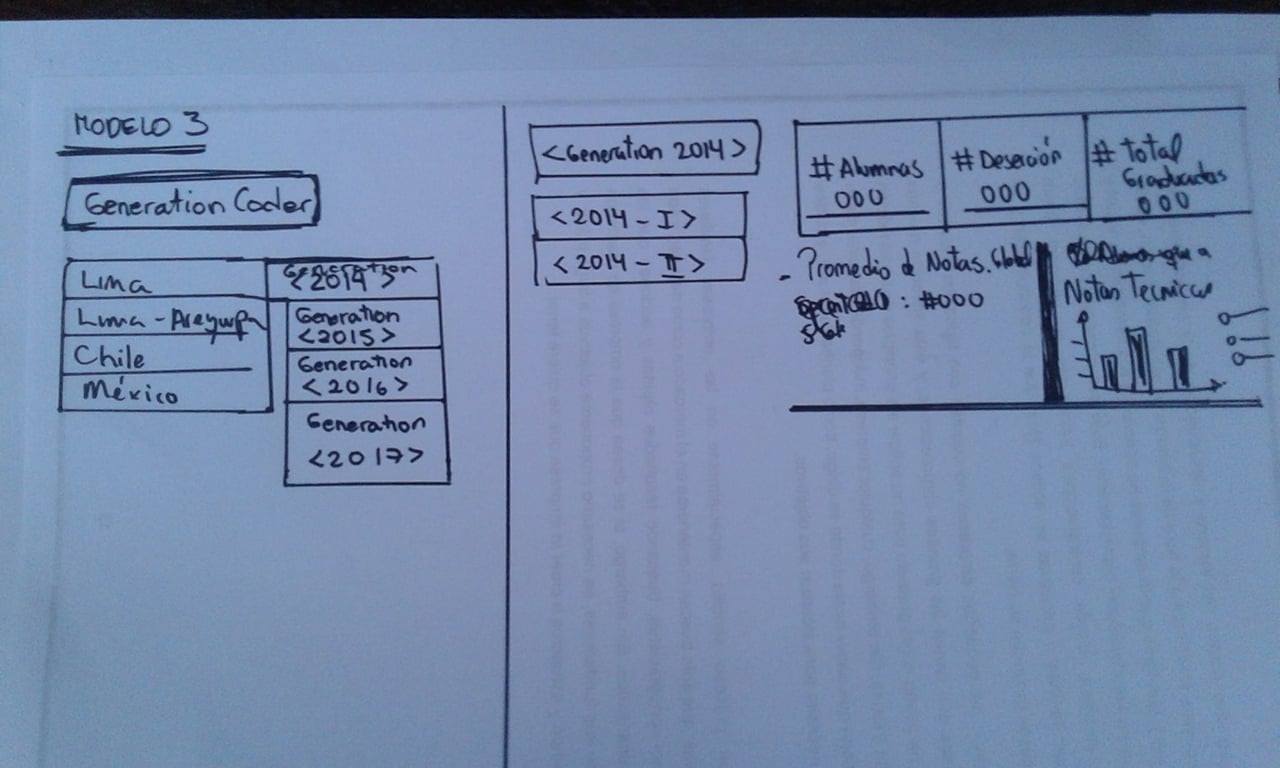 MODELO 3
Generation Coder
Lima
Lima - Arequipa
Chile
México
Generation
<2014>
Generation
<2015>
Generation
<2016>
Generation
<2017>
<Generation 2014>
<2014 - I>
<2014 - II>
# Alumnas
000
# Deserción
000
# Total
Graduadas
000
- Promedio de Notas. Global
: #000
a
Notas Tecnicas